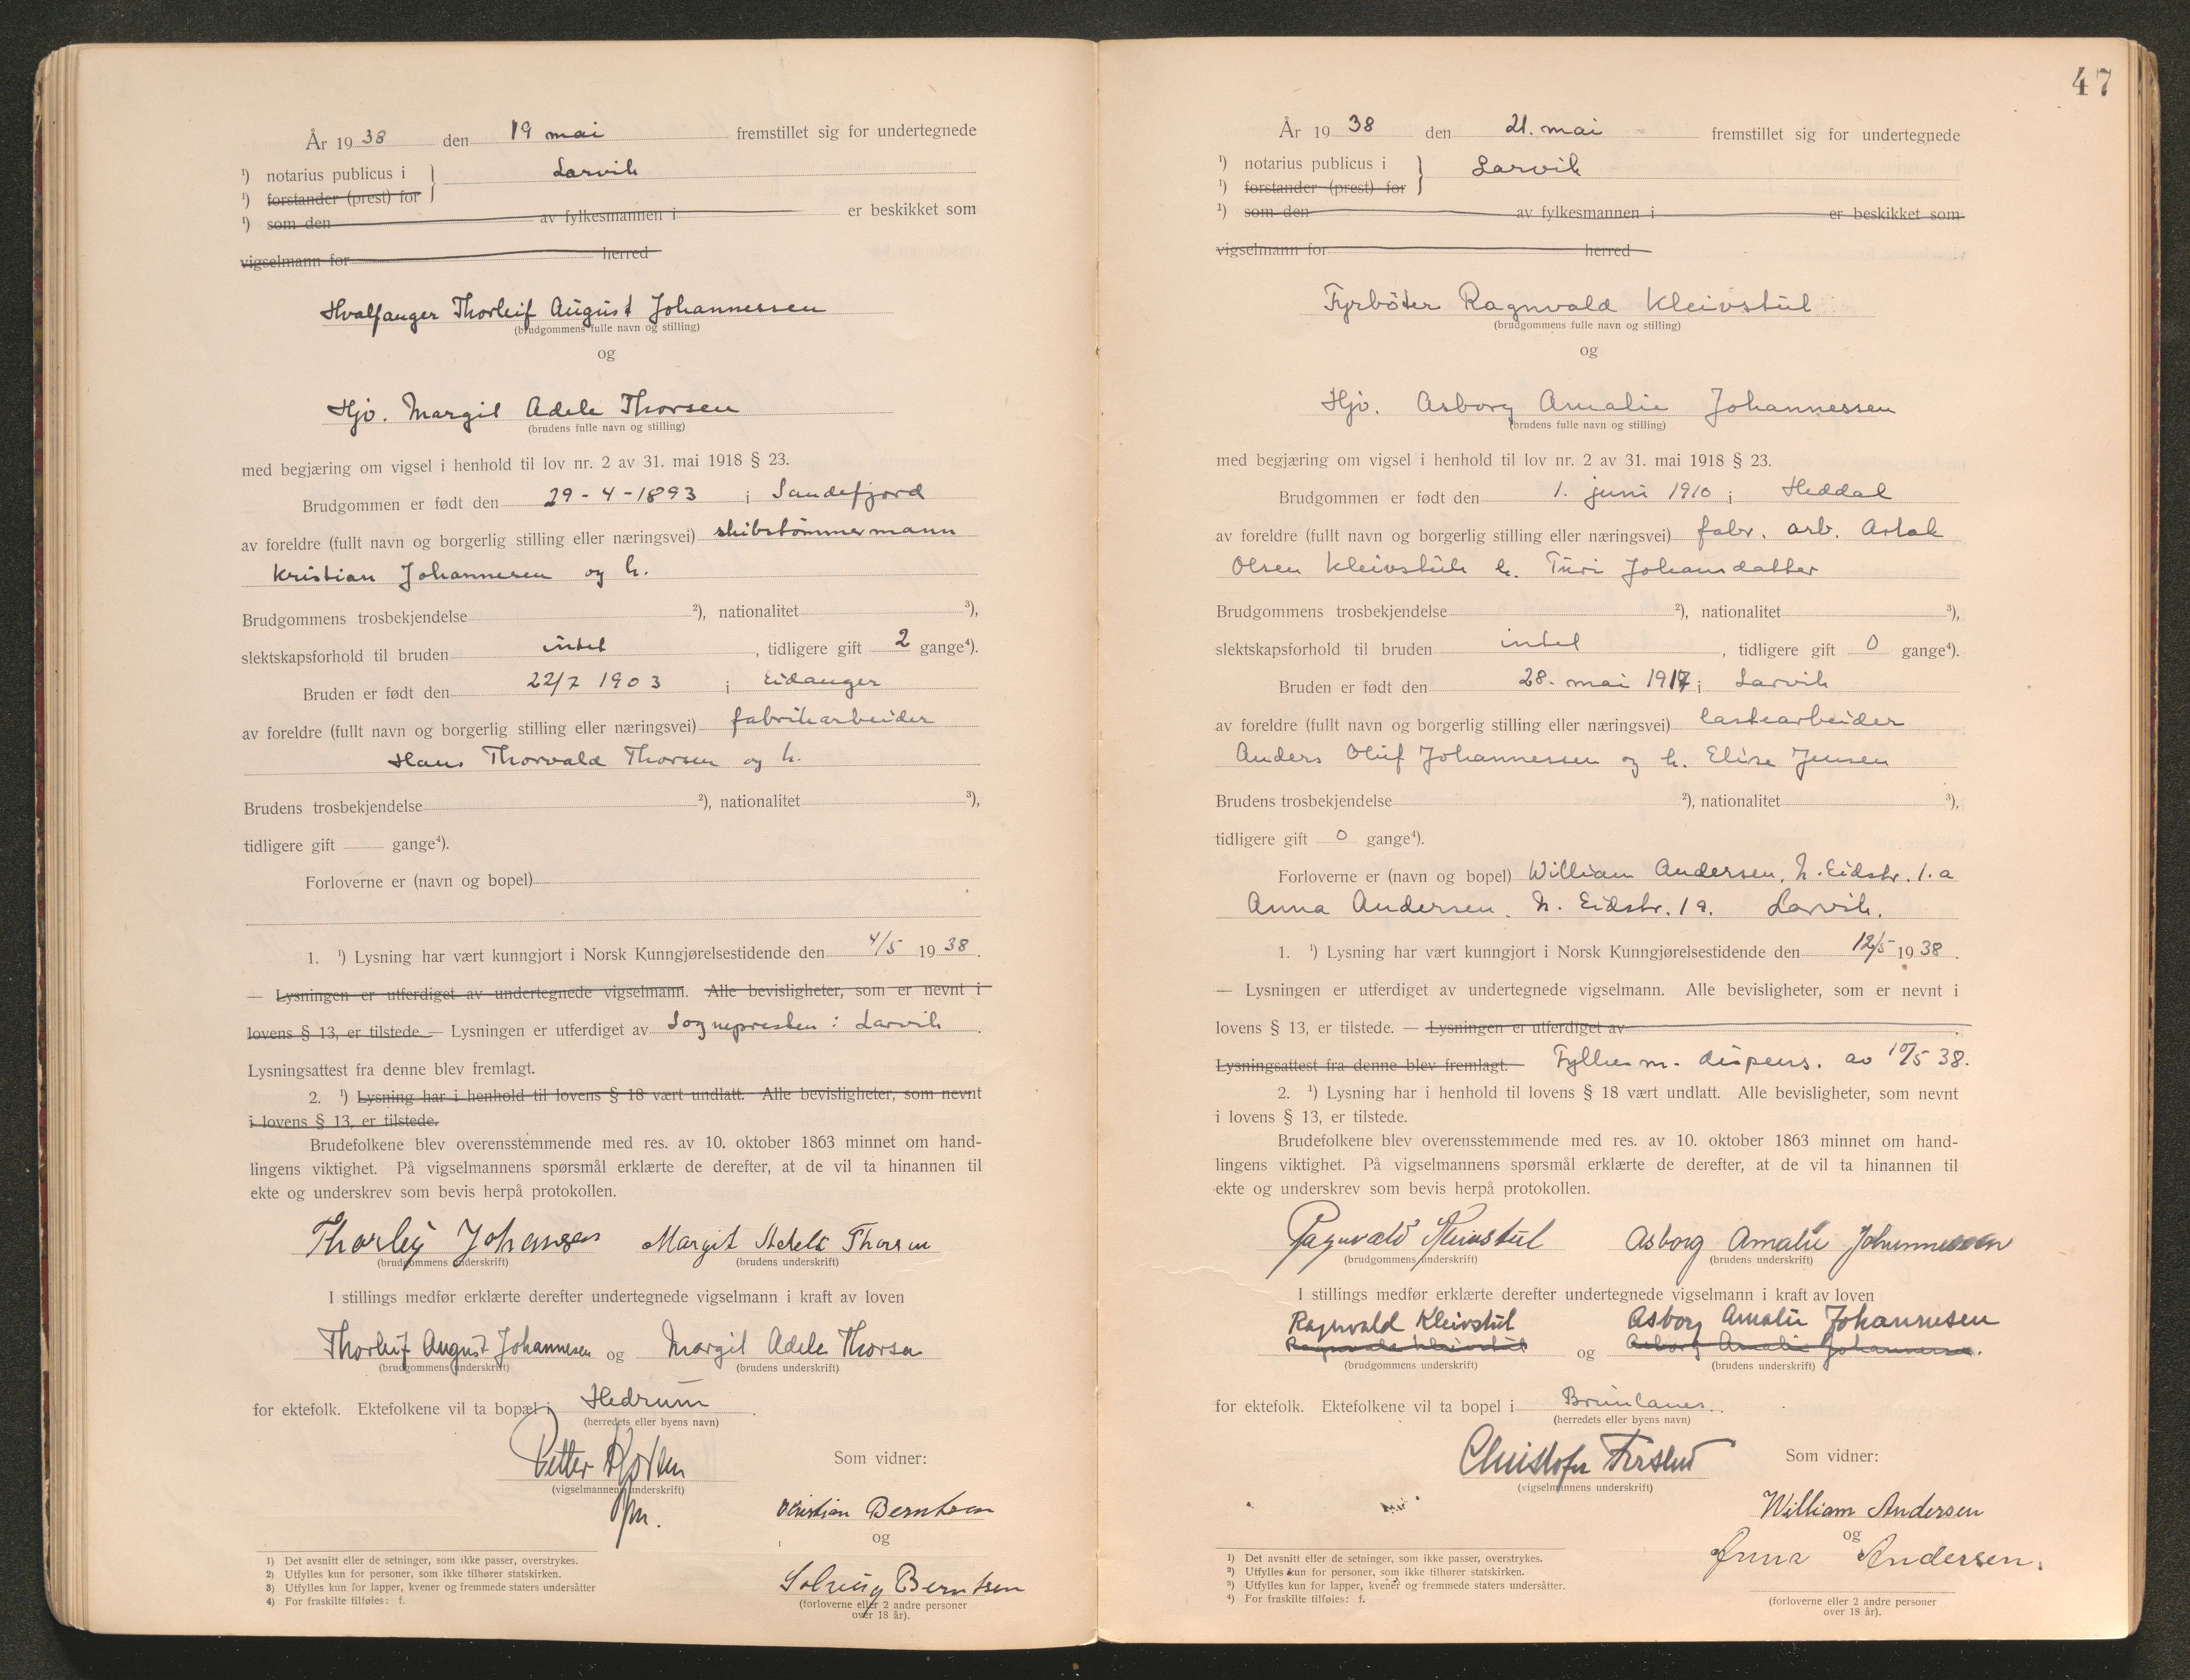 År 1938 den 19 mai fremstillet sig for undertegnede
¹) notarius publicus i } Larvik
¹) forstander (prest) for
¹) som den av fylkesmannen i er beskikket som
vigselmann for herred
Hvalfanger Thorleif August Johannessen
(brudgommens fulle navn og stilling)
og
Hjv. Margit Adele Thorsen
(brudens fulle navn og stilling)
med begjæring om vigsel i henhold til lov nr. 2 av 31. mai 1918 § 23.
Brudgommen er født den 29-4-1893 i Sandefjord
av foreldre (fullt navn og borgerlig stilling eller næringsvei) skibstømmermann
Kristian Johannesen og h.
Brudgommens trosbekjendelse ²), nationalitet ³),
slektskapsforhold til bruden intet, tidligere gift 2 gange⁴).
Bruden er født den 22/7 1903 i Eidanger
av foreldre (fullt navn og borgerlig stilling eller næringsvei) fabrikarbeider
Hans Thorvald Thorsen og h.
Brudens trosbekjendelse ²), nationalitet ³),
tidligere gift gange⁴).
Forloverne er (navn og bopel)
1. ¹) Lysning har vært kunngjort i Norsk Kunngjørelsestidende den 4/5 1938.
— Lysningen er utferdiget av undertegnede vigselmann. Alle bevisligheter, som er nevnt i
lovens § 13, er tilstede. — Lysningen er utferdiget av Sognepresten i Larvik.
Lysningsattest fra denne blev fremlagt.
2. ¹) Lysning har i henhold til lovens § 18 vært undlatt. Alle bevisligheter, som nevnt
i lovens § 13, er tilstede.
Brudefolkene blev overensstemmende med res. av 10. oktober 1863 minnet om hand-
lingens viktighet. På vigselmannens spørsmål erklærte de derefter, at de vil ta hinannen til
ekte og underskrev som bevis herpå protokollen.
Thorleif Johansen Margit Adele Thorsen
(brudgommens underskrift) (brudens underskrift)
I stillings medfør erklærte derefter undertegnede vigselmann i kraft av loven
Thorleif August Johannesen og Margit Adele Thorsen
(brudgommens underskrift) (brudens underskrift)
for ektefolk. Ektefolkene vil ta bopæl i Hedrum.
(herredets eller byens navn)
Petter
Som vidner:
(vigselmannens underskrift)
Kristian Berntsen
og
Solveig Berntsen
(forloverne eller 2 andre personer
over 18 år).
1) Det avsnitt eller de setninger, som ikke passer, overstrykes.
2) Utfylles kun for personer, som ikke tilhører statskirken.
3) Utfylles kun for lapper, kvener og fremmede staters undersåtter
4) For fraskilte tilføies: f.
47
År 1938 den 21. mai fremstillet sig for undertegnede
¹) notarius publicus i } Larvik
¹) forstander (prest) for
¹) som den av fylkesmannen i er beskikket som
vigselmann for herred
Fyrbøter Ragnvald Kleivstul
(brudgommens fulle navn og stilling)
og
Hjv. Asborg Amalie Johannessen
(brudens fulle navn og stilling)
med begjæring om vigsel i henhold til lov nr. 2 av 31. mai 1918 § 23.
Brudgommen er født den 1. juni 1910 i Heddal
av foreldre (fullt navn og borgerlig stilling eller næringsvei) fabr. arb. Aslak
Olsen Kleivstul h. Turi Johansdatter
Brudgommens trosbekjendelse ²), nationalitet ³),
slektskapsforhold til bruden intet, tidligere gift 0 gange⁴).
Bruden er født den 28. mai 1917 i Larvik
av foreldre (fullt navn og borgerlig stilling eller næringsvei) lastearbeider
Anders Oluf Johannessen og h. Elise Jensen
Brudens trosbekjendelse ²), nationalitet ³),
tidligere gift 0 gange⁴).
Forloverne er (navn og bopel) William Andersen, N. Eidstr. 1.a
Anna Andersen, N. Eidstr. 1a. Larvik.
1. ¹) Lysning har vært kunngjort i Norsk Kunngjørelsestidende den 12/5 1938.
— Lysningen er utferdiget av undertegnede vigselmann. Alle bevisligheter, som er nevnt i
lovens § 13, er tilstede. — Lysningen er utferdiget av.
Lysningsattest fra denne blev fremlagt. Fylkesm. dispens. av 10/5 38.
2. ¹) Lysning har i henhold til lovens § 18 vært undlatt. Alle bevisligheter, som nevnt
i lovens § 13, er tilstede.
Brudefolkene blev overensstemmende med res. av 10. oktober 1863 minnet om hand-
lingens viktighet. På vigselmannens spørsmål erklærte de derefter, at de vil ta hinannen til
ekte og underskrev som bevis herpå protokollen.
Ragnvald Kleivstul Asborg Amalie Johannessen
(brudgommens underskrift) (brudens underskrift)
I stillings medfør erklærte derefter undertegnede vigselmann i kraft av loven
Ragnvald Kleivstul Asborg Amalie Johannesen
Ragnvald Kleivstul og Asborg Amalie Johannessen.
(brudgommens underskrift) (brudens underskrift)
for ektefolk. Ektefolkene vil ta bopel i Brunlanes.
(herredets eller byens navn)
Christofer
Som vidner:
(vigselmannens underskrift)
William Andersen
og
Anna Andersen.
(forloverne eller 2 andre personer
over 18 år).
1) Det avsnitt eller de setninger, som ikke passer, overstrykes.
2) Utfylles kun for personer, som ikke tilhører statskirken.
3) Utfylles kun for lapper, kvener og fremmede staters undersåtter.
4) For fraskilte tilføies: f.